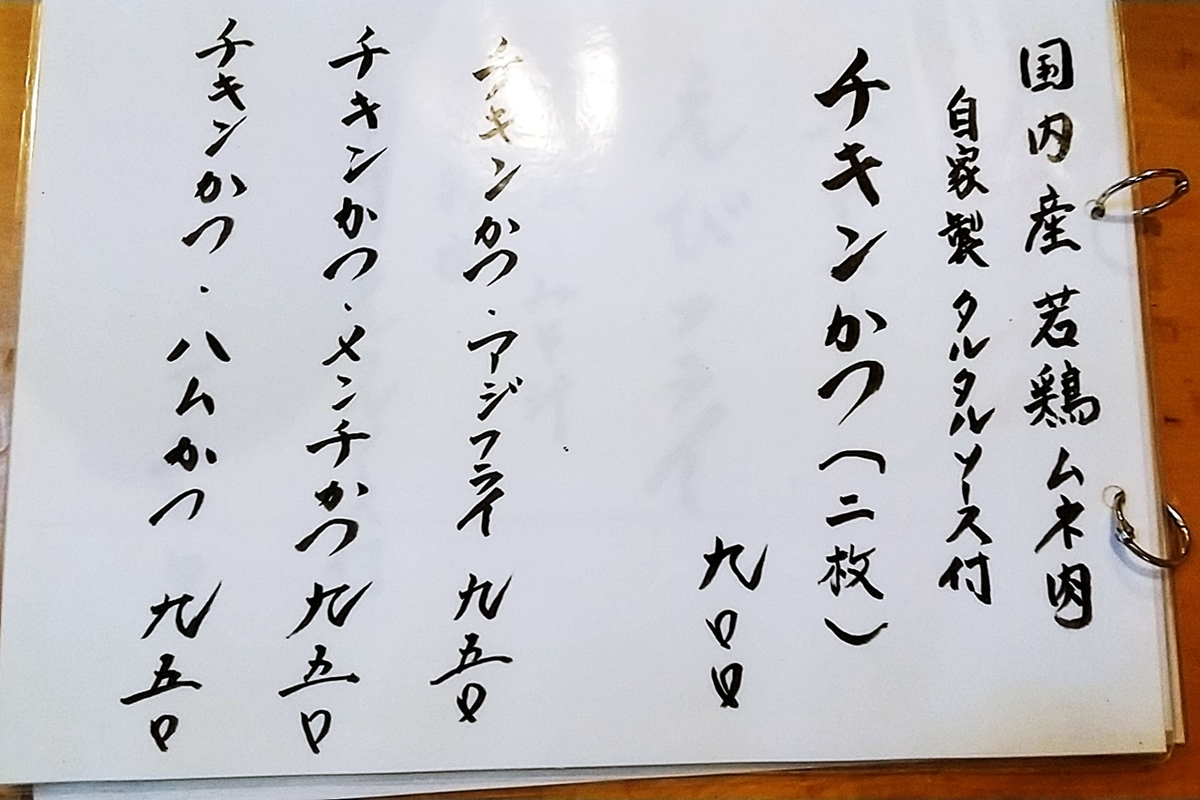 国内産若鶏ムネ肉
自家製タルタルソース付
チキンかつ(二枚)
九〇〇
チキンかつ・アジフライ 九五〇
チキンかつ・メンチかつ 九五〇
チキンかつ・ハムかつ 九五〇